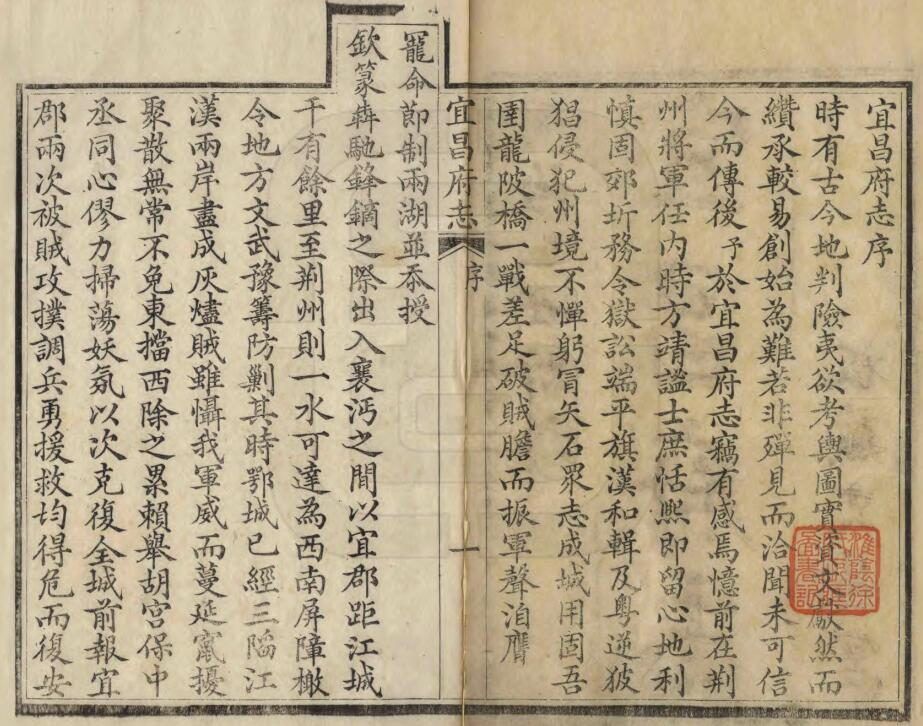 宜昌府志序
時有古今地判險夷欲考輿圖實資文獻然而
纘承較易創始為難若非殫見而洽聞未可信
今而傳後予於宜昌府志竊有感焉憶前在荆
州將軍任内時方靖謐士庶恬熙即留心地利
慎固郊圻務令獄訟端平旗漢和輯及粤逆披
猖侵犯州境不憚躬冒矢石眾志成城用固吾
圉龍陂橋一戰差足破賊膽而振軍聲洎膺
宜昌府志
序
一
寵命節制兩湖並忝授
欽篆犇馳鋒鏑之際出入襄沔之間以宜郡距江城
千有餘里至荆州則一水可達為西南屏障檄
令地方文武豫籌防勦其時鄂城已經三陷江
漢兩岸盡成灰燼賊雖懾我軍威而蔓延竄擾
聚散無常不免東擋西除之累賴舉胡宫保中
丞同心僇力掃蕩妖氛以次克復全城前報宜
郡兩次被賊攻撲調兵勇援救均得危而復安